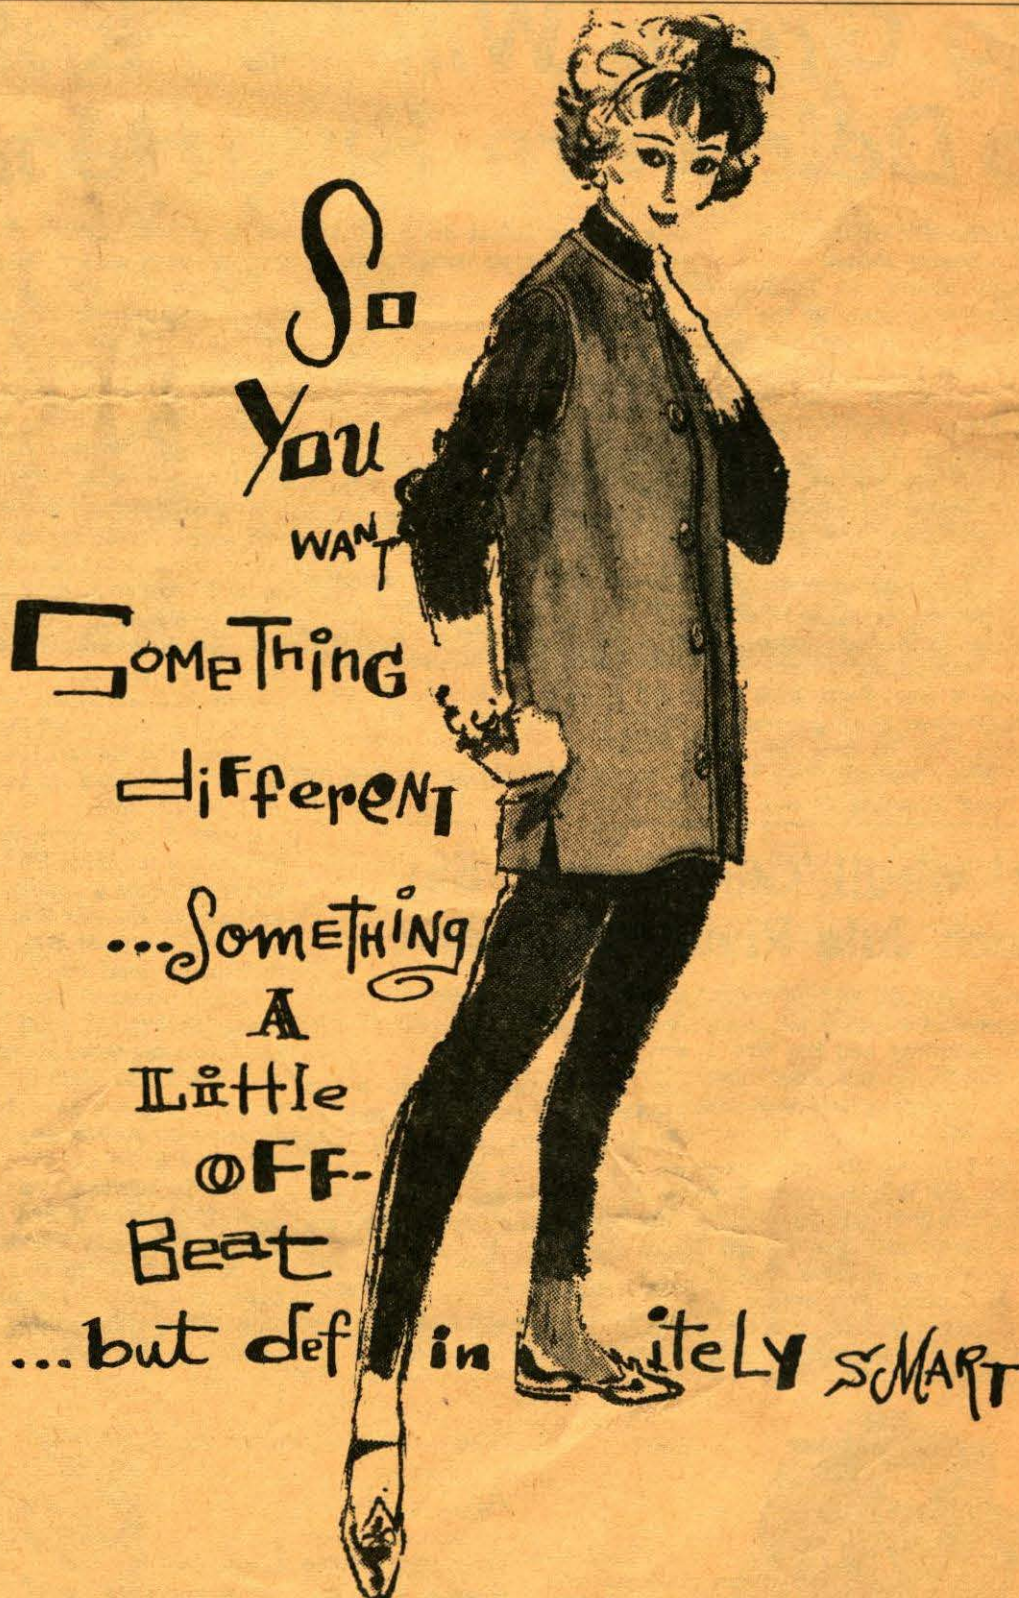 So
You
WANT
SOMeThinG
diFfereNT
...SomETHiNg
A
Little
OFF-
Beat
...but def in iteLy SMART